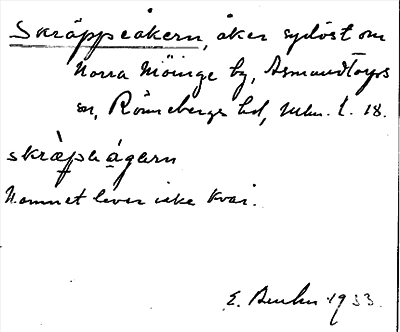 Skräppeåkern, åker sydost om
Norra Möinge by, Asmundtorps
sn, Rönnebergs hd, Mlm. l. 18.
skràpəágərn
Namnet lever icke kvar.
E. 1933